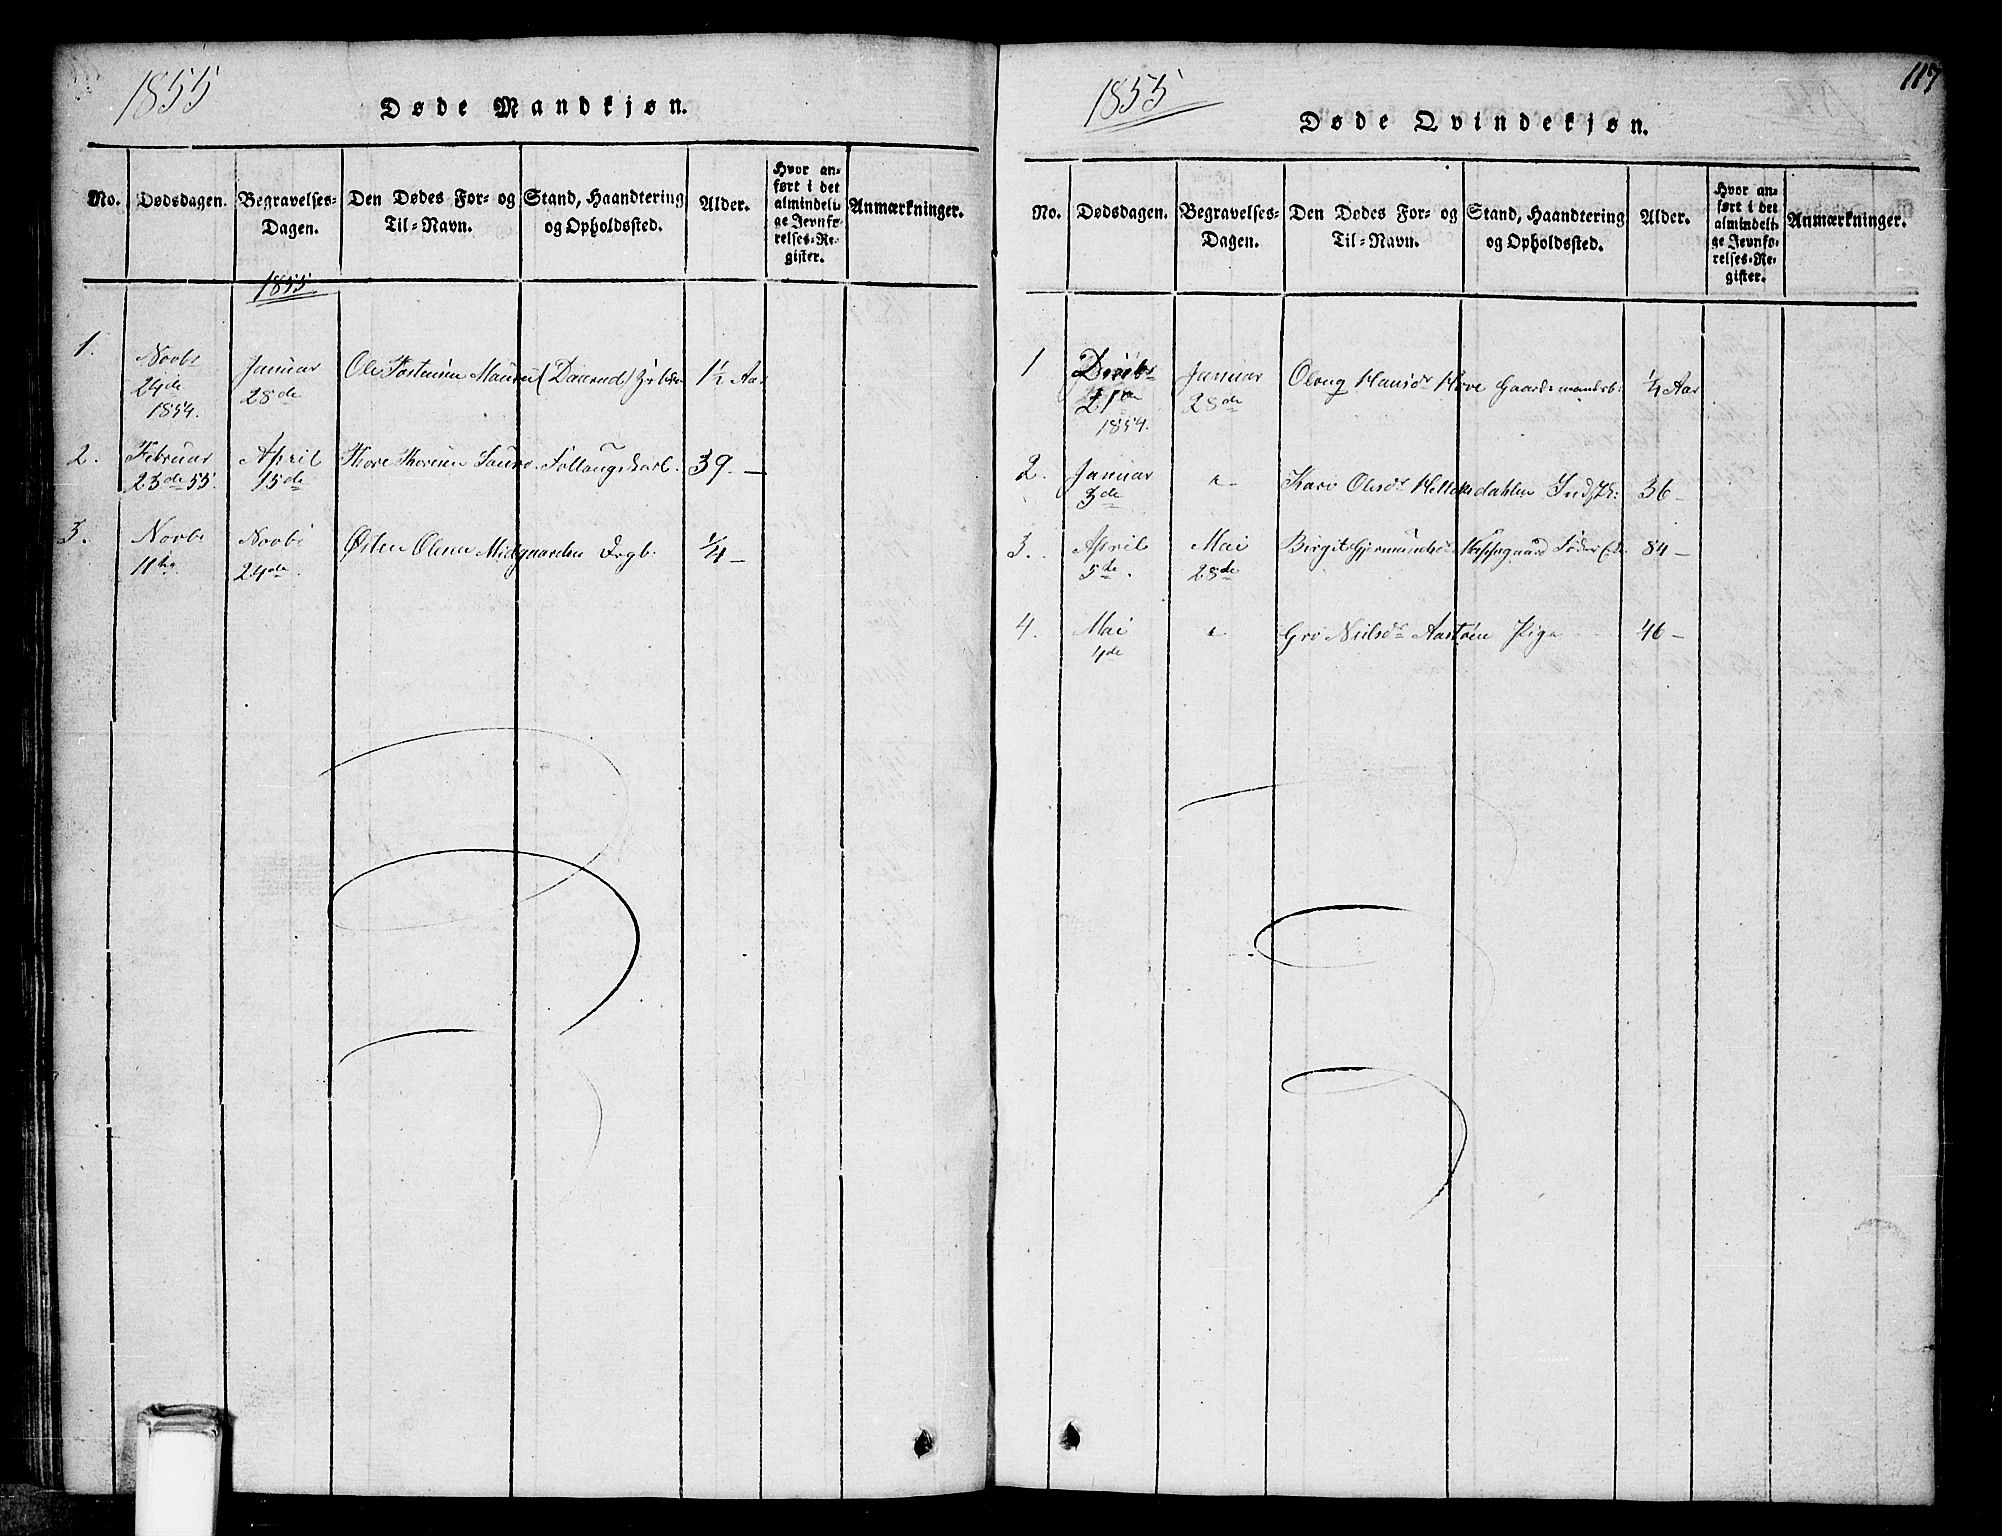 1855
Døde Mandkjøn.
No. Dødsdagen. Begravelses-Dagen. Den Dødes For- og Til-Navn. Stand, Haandtering og Opholdssted. Alder. Hvor anført i det almindelige Jevnførelses-Register. Anmærkninger.
1855
1. Novbr 24de 1854. Januar 28de Ole Mauren (Daarud) 1½ Aar
2. Februar 23de 55. April 15de Thore Thoresen 39. —
3. Novbr 11te Novbr 24de Østen Olesen Midgaarden ¼ —
117
1855
Døde Qvindekjøn.
No. Dødsdagen. Begravelses-Dagen. Den Dødes For- og Til-Navn. Stand, Haandtering og Opholdssted. Alder. Hvor anført i det almindelige Jevnførelses-Register. Anmærkninger.
1 Decbr 21de 1854. Januar 28de Olaug Hansdr Hove Gaardmandsb. ¼ Aar
2. Januar 3de " Kari Olesdr 36 —
3. April 5te. Mai 28de Birgit Gjermundsdr 84 —
4. Mai 4de " Gro Nielsdr Aasteen Pige 46 —